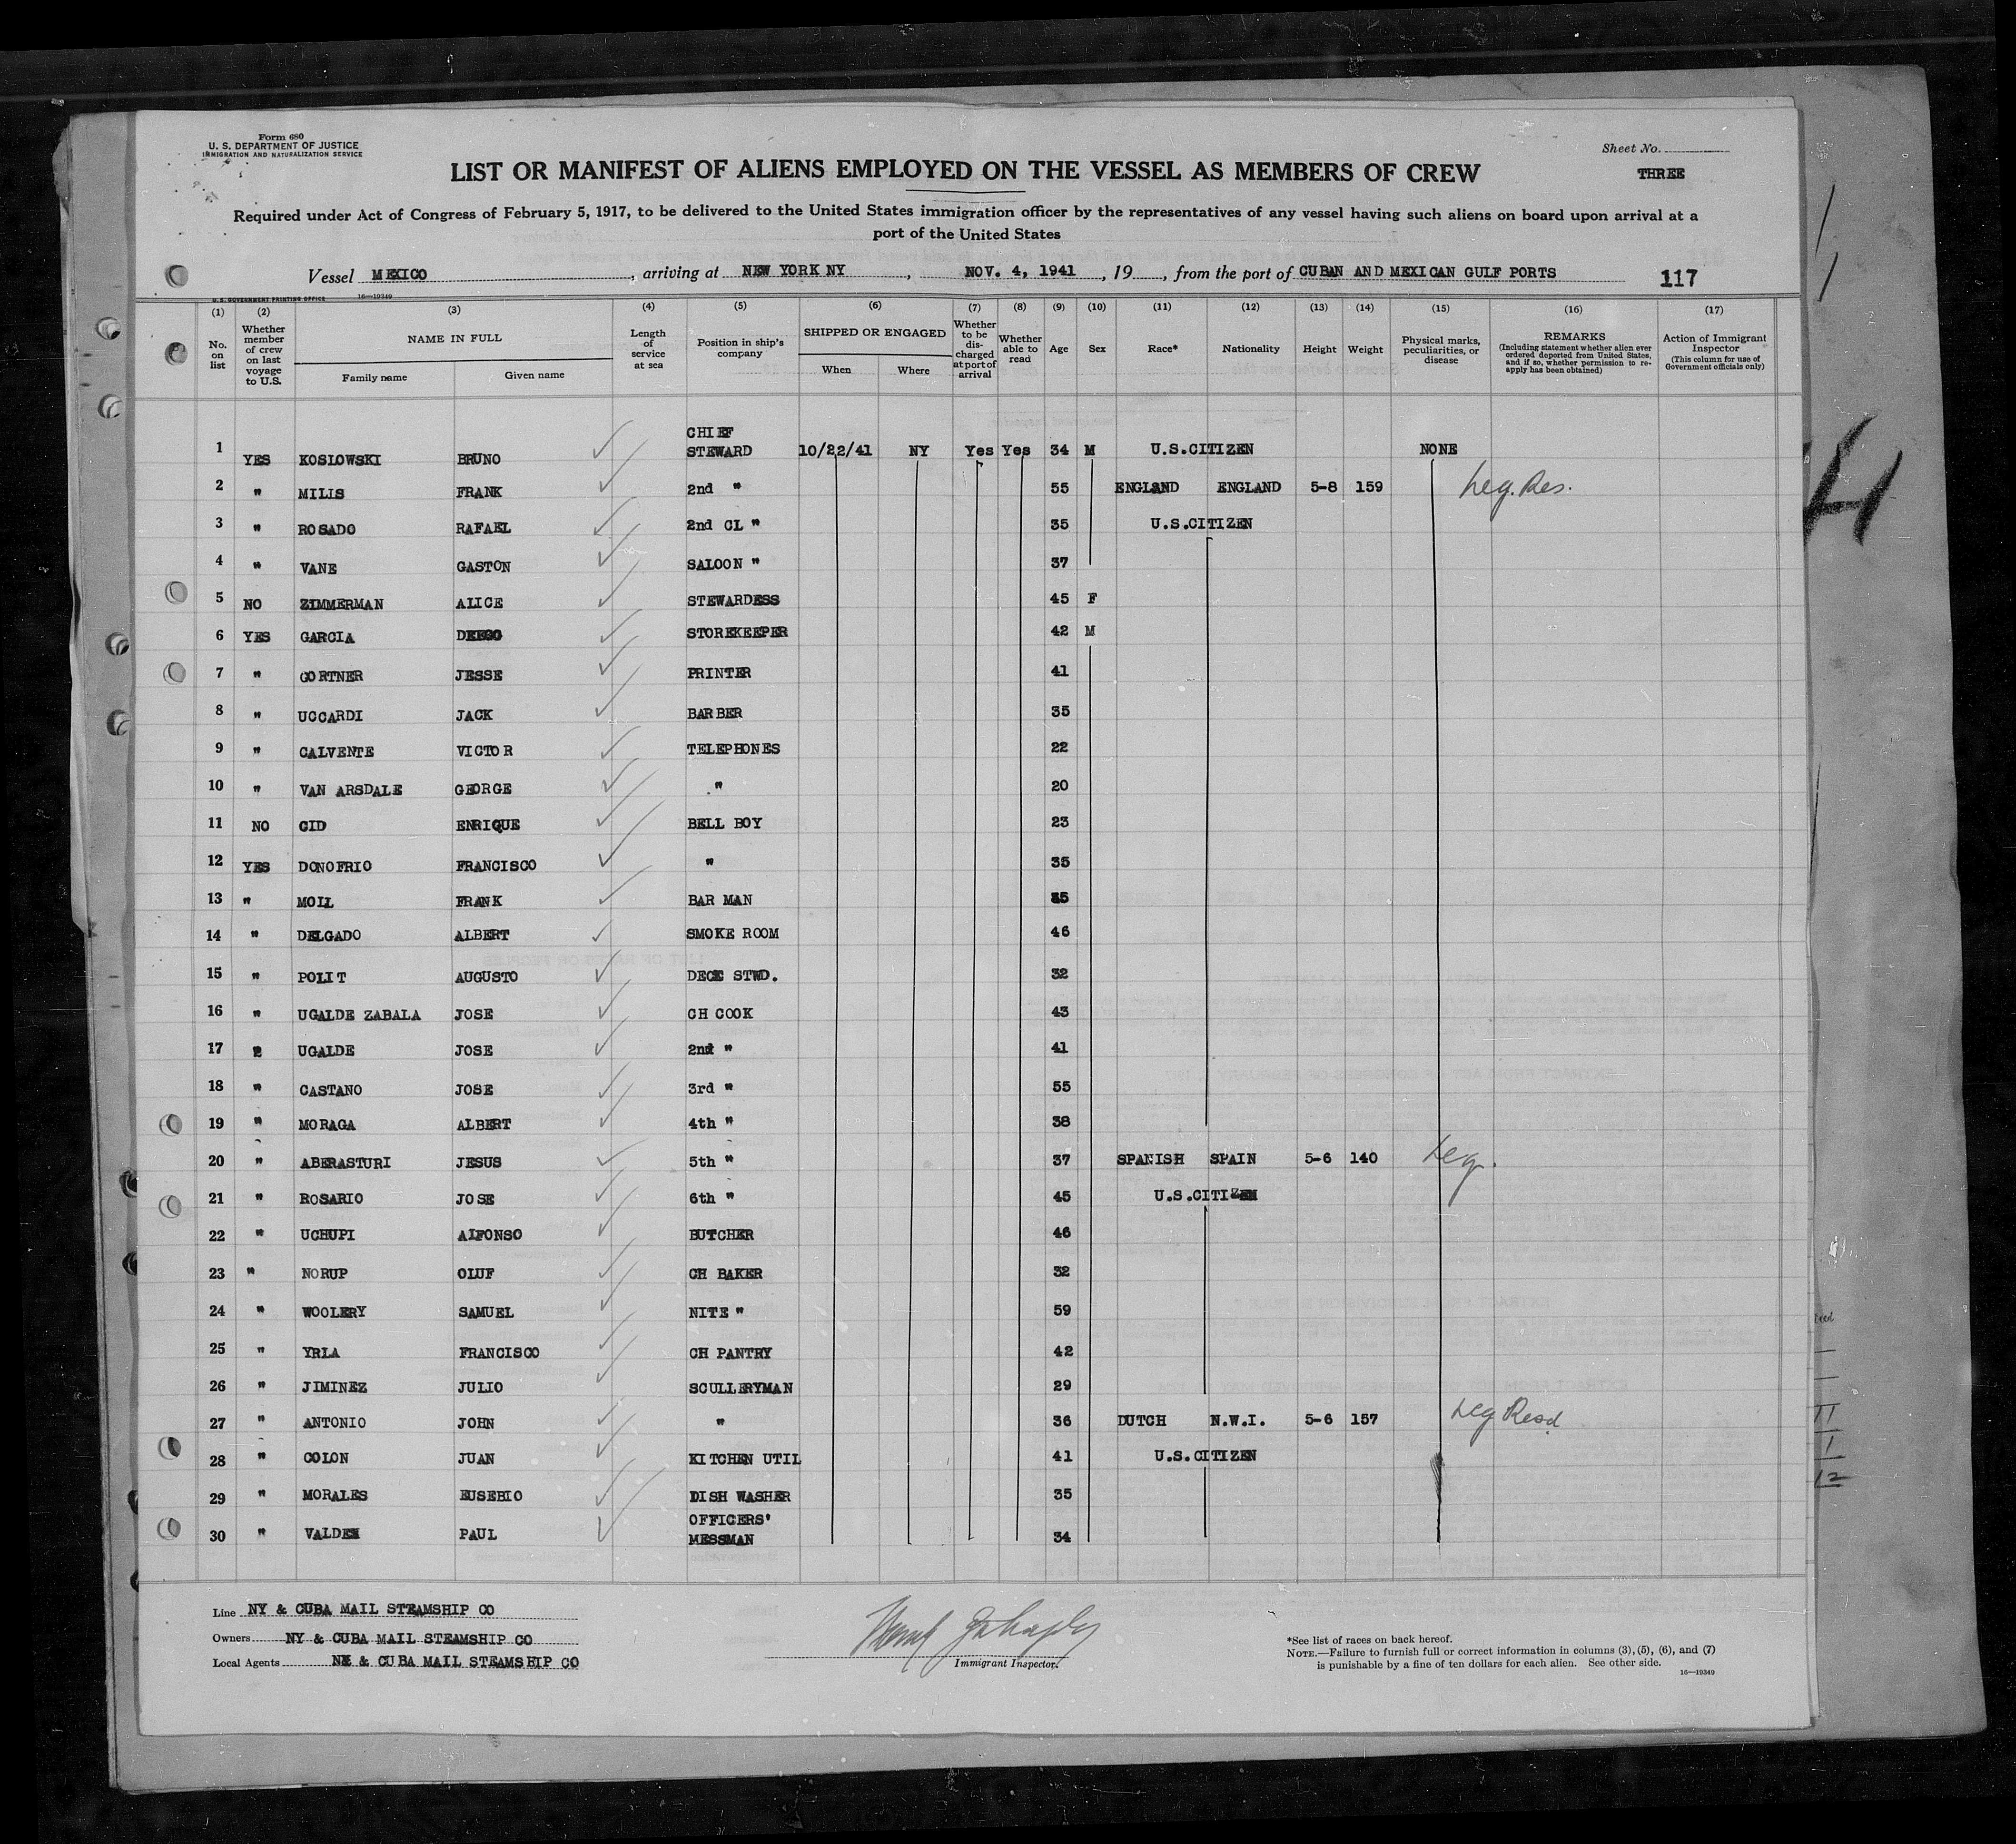 Form 680
U. S. DEPARTMENT OF JUSTICE
IMMIGRATION AND NATURALIZATION SERVICE
Sheet No.
THREE
LIST OR MANIFEST OF ALIENS EMPLOYED ON THE VESSEL AS MEMBERS OF CREW
Required under Act of Congress of February 5, 1917, to be delivered to the United States immigration officer by the representatives of any vessel having such aliens on board upon arrival at a
port of the United States
Vessel MEXICO, arriving at NEW YORK NY, NOV. 4, 1941, 19, from the port of CUBAN AND MEXICAN GULF PORTS 117
U. S. GOVERNMENT PRINTING OFFICE 16—19349
(1) (2) (3) (4) (5) (6) (7) (8) (9) (10) (11) (12) (13) (14) (15) (16) (17)
No. on list
Whether member of crew on last voyage to U.S.
NAME IN FULL
Family name Given name
Length of service at sea
Position in ship's company
SHIPPED OR ENGAGED
When Where
Whether to be discharged at port of arrival
Whether able to read
Age Sex Race* Nationality Height Weight
Physical marks, peculiarities, or disease
REMARKS
(Including statement whether alien ever ordered deported from United States, and if so, whether permission to reapply has been obtained)
Action of Immigrant Inspector
(This column for use of Government officials only)
1 YES KOSLOWSKI BRUNO CHIEF STEWARD 10/22/41 NY Yes Yes 34 M U.S.CITIZEN NONE
2 " MILIS FRANK 2nd " 55 ENGLAND ENGLAND 5-8 159 Leg. Res.
3 " ROSADO RAFAEL 2nd CL " 35 U.S.CITIZEN
4 " VANE GASTON SALOON " 37
5 NO ZIMMERMAN ALICE STEWARDESS 45 F
6 YES GARCIA STOREKEEPER 42 M
7 " GORTNER JESSE PRINTER 41
8 " UCCARDI JACK BARBER 35
9 " CALVENTE VICTOR TELEPHONES 22
10 " VAN ARSDALE GEORGE " 20
11 NO CID ENRIQUE BELL BOY 23
12 YES DONOFRIO FRANCISCO " 35
13 " MOLL FRANK BAR MAN
14 " DELGADO ALBERT SMOKE ROOM 46
15 " POLIT AUGUSTO DECE STWD. 32
16 " UGALDE ZABALA JOSE CH COOK 43
17 UGALDE JOSE 2nd " 41
18 " CASTANO JOSE 3rd " 55
19 " MORAGA ALBERT 4th " 38
20 " ABERASTURI JESUS 5th " 37 SPANISH SPAIN 5-6 140 Leg.
21 " ROSARIO JOSE 6th " 45 U.S.CITIZEN
22 " UCHUPI ALFONSO BUTCHER 46
23 " NORUP OLUF CH BAKER 32
24 " WOOLERY SAMUEL NITE " 59
25 " YRLA FRANCISCO CH PANTRY 42
26 " JIMINEZ JULIO SCULLERYMAN 29
27 " ANTONIO JOHN " 36 DUTCH N.W.I. 5-6 157 Leg Resd
28 " COLON JUAN KITCHEN UTIL 41 U.S.CITIZEN
29 " MORALES EUSEBIO DISH WASHER 35
30 " PAUL OFFICERS' MESSMAN 34
Line NY & CUBA MAIL STEAMSHIP CO
Owners NY & CUBA MAIL STEAMSHIP CO
Local Agents NY & CUBA MAIL STEAMSHIP CO
Immigrant Inspector.
*See list of races on back hereof.
NOTE.—Failure to furnish full or correct information in columns (3), (5), (6), and (7)
is punishable by a fine of ten dollars for each alien. See other side.
16—19349